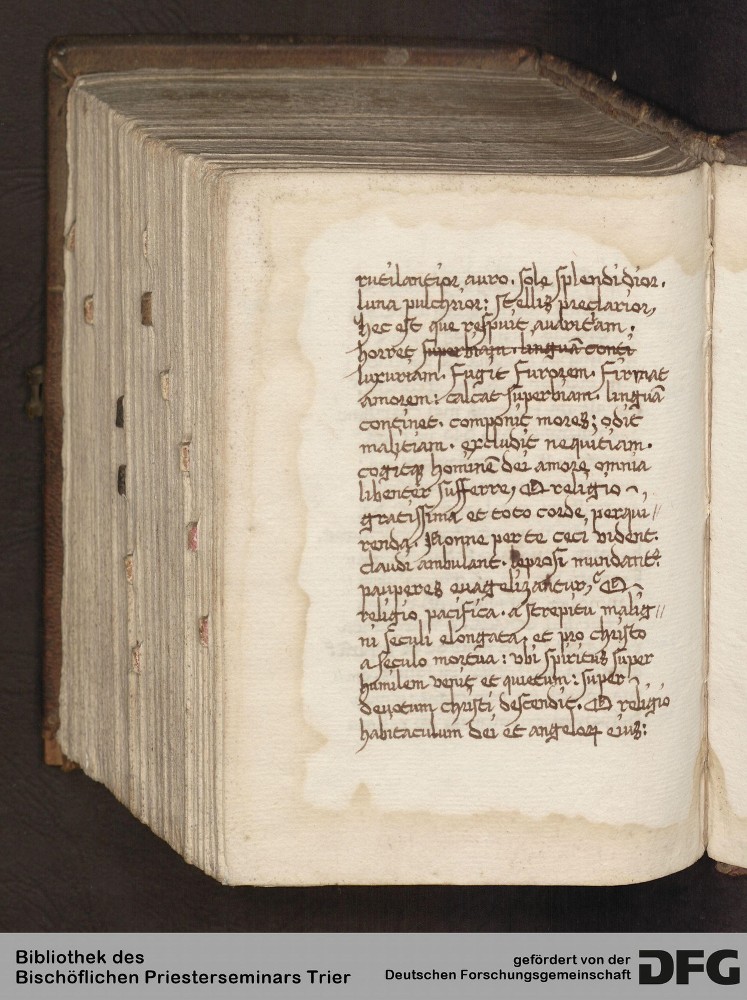 rutilantior auro. sole splendidior.
luna pulchrior: stellis preclarior,
hec est que respuit auaritiam.
horret superbiam. linguā conti
luxuriam. fugit furorem. firmat
amorem: calcat superbiam. linguā
continet. componit mores; odit
malitiam. excludit nequitiam.
hominē dei amore omnia
libenter sufferre, O religio,
gratissima et toto corde, perqui//
renda. Nonne per te ceci vident.
claudi ambulant. leprosi mundantᷣ.
pauperes euāgelizantur, O
religio pacifica. a strepitu malig//
ni seculi elongata, et pro christo
a seculo mortua: vbi spiritus super
humilem venit et quietum: super
deuotum christi descendit. O religio
habitaculum dei et angeloꝝ eius:
Bibliothek des
Bischöflichen Priesterseminars Trier
gefördert von der
Deutschen Forschungsgemeinschaft DFG